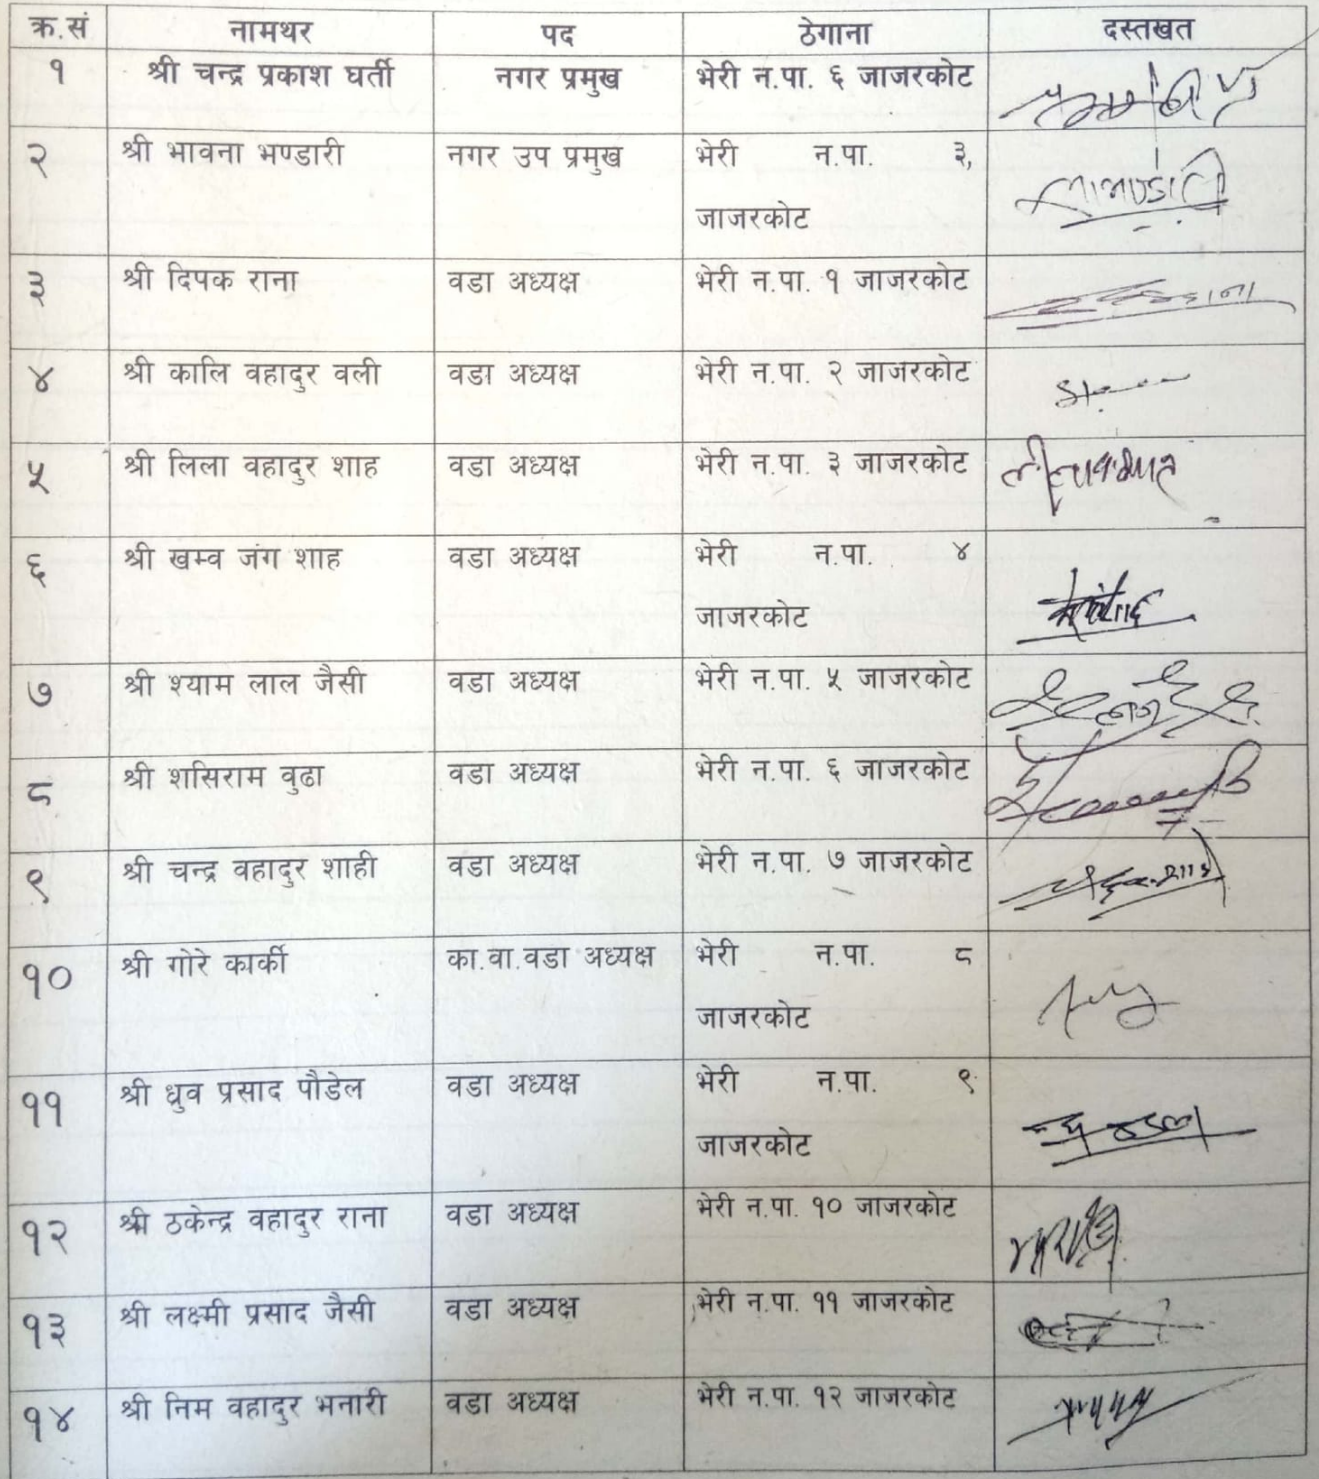 क्र.सं नामथर पद ठेगाना दस्तखत
१ श्री चन्द्र प्रकाश घर्ती नगर प्रमुख भेरी न.पा. ६ जाजरकोट
२ श्री भावना भण्डारी नगर उप प्रमुख भेरी न.पा. ३,
जाजरकोट
३ श्री दिपक राना वडा अध्यक्ष भेरी न.पा. १ जाजरकोट
४ श्री कालि वहादुर वली वडा अध्यक्ष भेरी न.पा. २ जाजरकोट
५ श्री लिला वहादुर शाह वडा अध्यक्ष भेरी न.पा. ३ जाजरकोट
६ श्री खम्व जंग शाह वडा अध्यक्ष भेरी न.पा. ४
जाजरकोट
७ श्री श्याम लाल जैसी वडा अध्यक्ष भेरी न.पा. ५ जाजरकोट
८ श्री शसिराम वुढा वडा अध्यक्ष भेरी न.पा. ६ जाजरकोट
९ श्री चन्द्र वहादुर शाही वडा अध्यक्ष भेरी न.पा. ७ जाजरकोट
१० श्री गोरे कार्की का.वा.वडा अध्यक्ष भेरी न.पा. ८
जाजरकोट
११ श्री ध्रुव प्रसाद पौडेल वडा अध्यक्ष भेरी न.पा. ९
जाजरकोट
१२ श्री ठकेन्द्र वहादुर राना वडा अध्यक्ष भेरी न.पा. १० जाजरकोट
१३ श्री लक्ष्मी प्रसाद जैसी वडा अध्यक्ष भेरी न.पा. ११ जाजरकोट
१४ श्री निम वहादुर भनारी वडा अध्यक्ष भेरी न.पा. १२ जाजरकोट